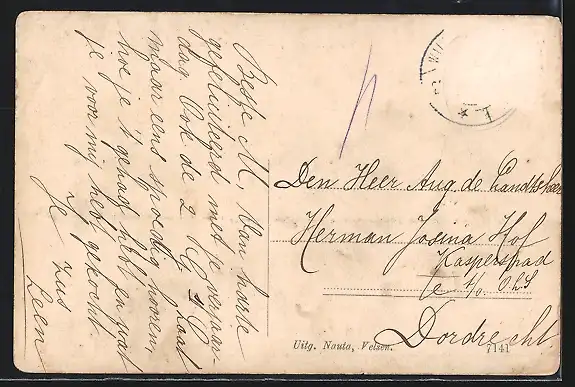 Beste M, Van harte
gefeliciteerd met je verjaar-
dag. Ook de 2 C C. Laat
maar eens spoedig hooren,
hoe je 't gehad hebt en wat
je voor mij hebt gekocht
Je Zus
Leen
Den Heer Aug. de Landtsheer
Herman Josina Hof
Kasperspad
Dordrecht
Uitg. Nauta, Velsen.
7141